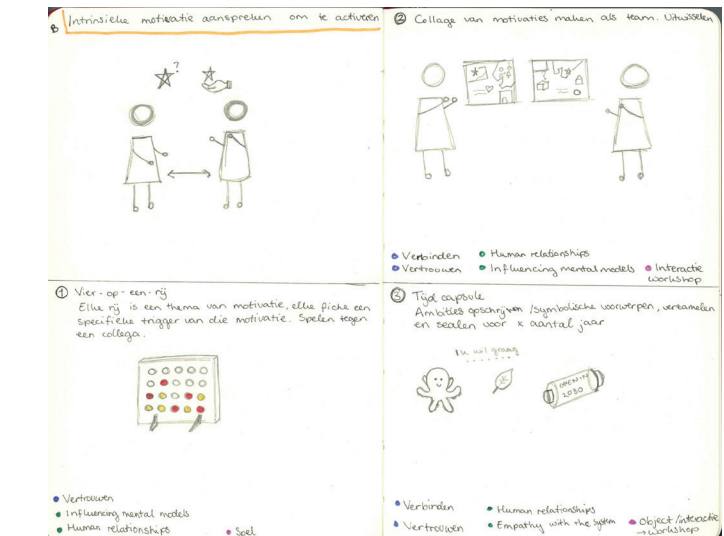 B Intrinsieke motivatie aanspreken om te activeren
?
① Vier-op-een-rij
Elke rij is een thema van motivatie, elke fiche een
specifieke trigger van die motivatie. Spelen tegen
een collega.
Vertrouwen
Influencing mental models
Human relationships
Spel
② Collage van motivaties maken als team. Uitwisselen
Verbinden
Vertrouwen
Human relationships
Influencing mental models
Interactie
workshop
③ Tijdcapsule
Ambities opschrijven /symbolische voorwerpen, verzamelen
en sealen voor x aantal jaar
Ik wil graag
OPEN IN
2030
Verbinden
Vertrouwen
Human relationships
Empathy with the system
Object/interactie
→ workshop